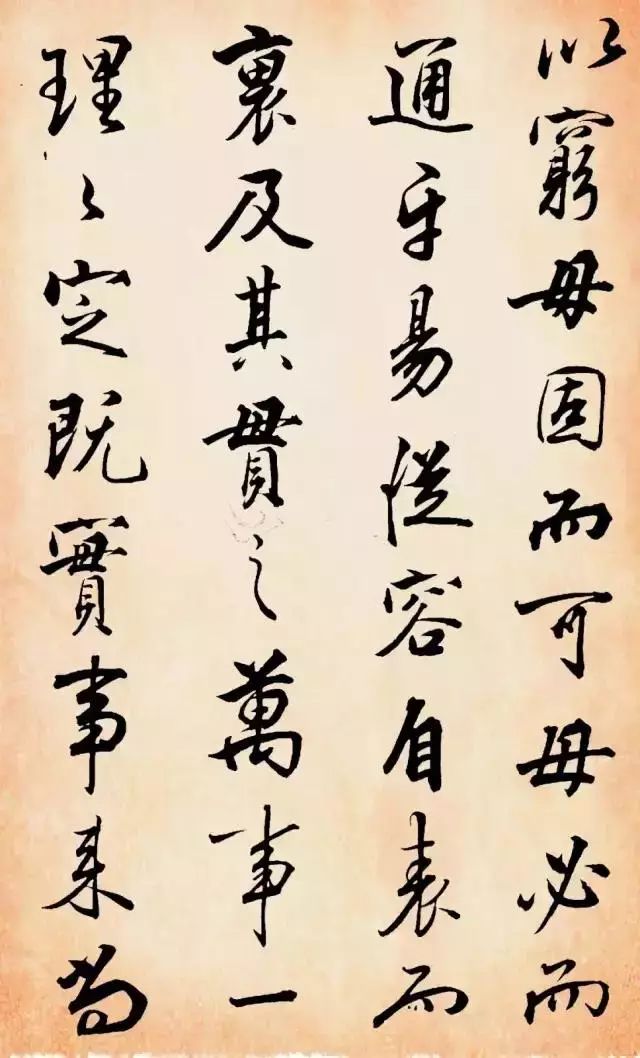 以窮毋固而可毋必而
通平易從容自表而
裏及其貫之萬事一
理〻定既實事來尚